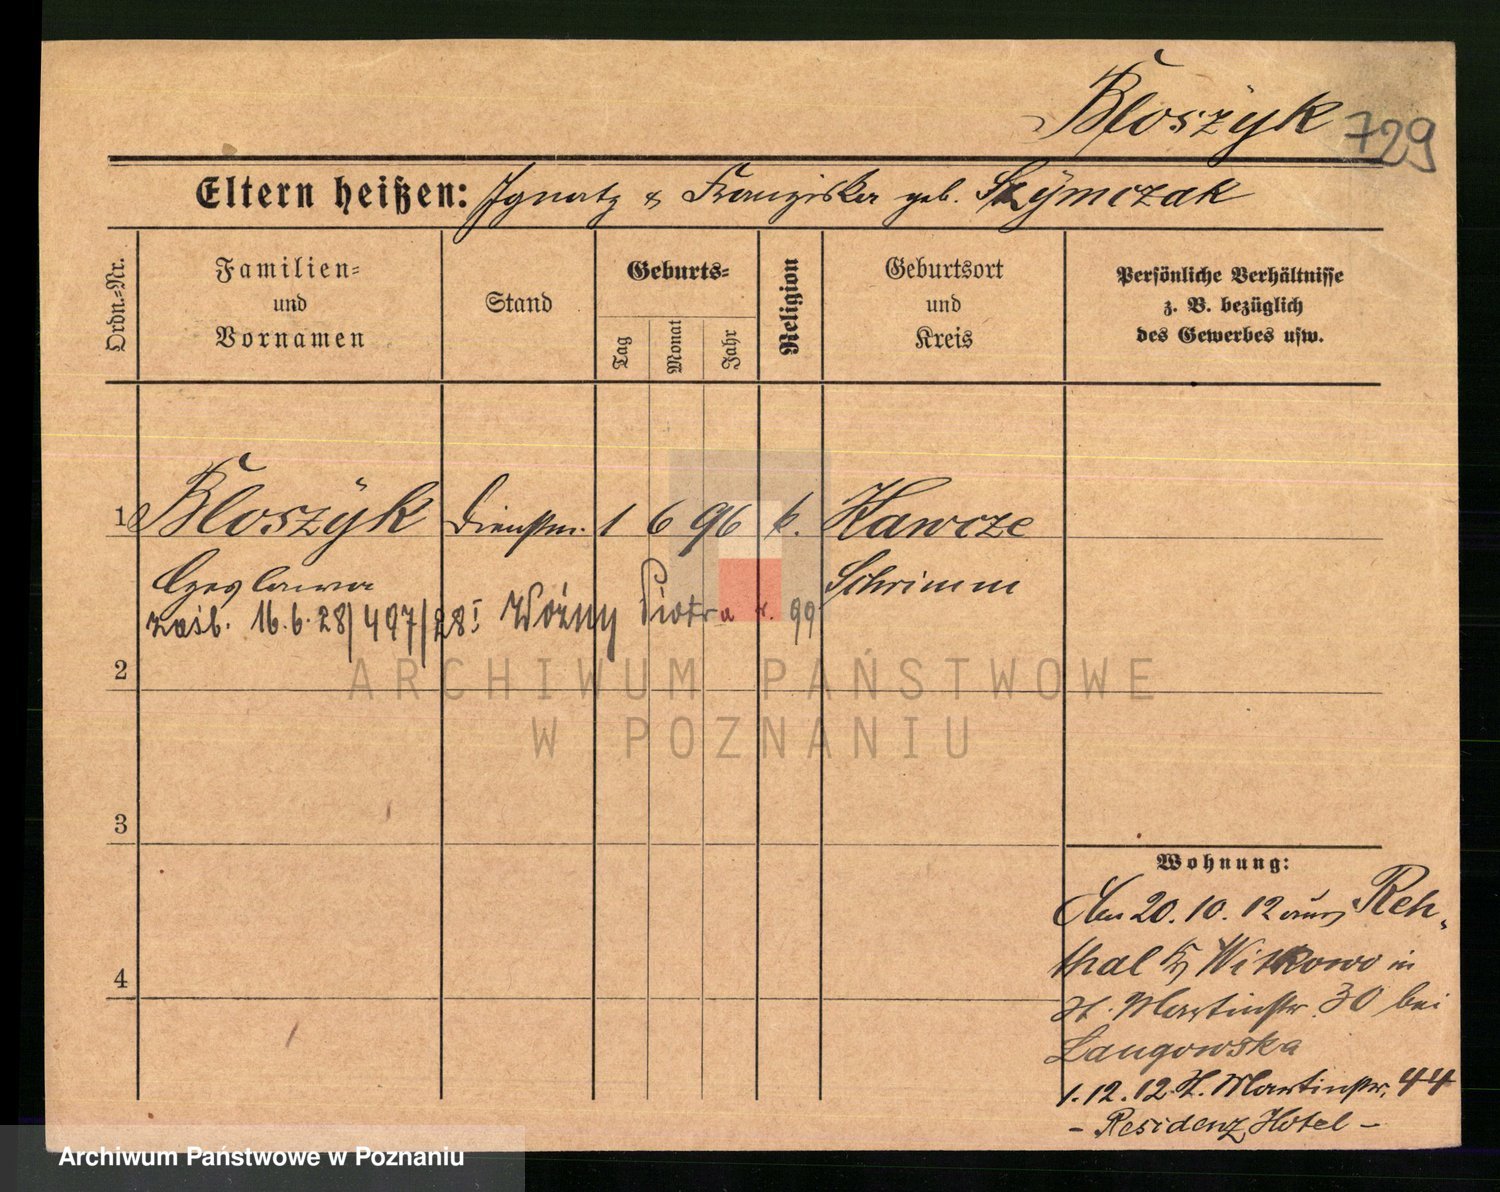 Bloszyk 729
Eltern heißen: Ignatz & Franziska geb. Szymczak
Ordn.-Nr.
Familien-
und
Vornamen
Stand
Geburts-
Tag
Monat
Jahr
Religion
Geburtsort
und
Kreis
Persönliche Verhältnisse
z. B. bezüglich
des Gewerbes usw.
1 Bloszyk Dienstm. 1 6 96 k. Hawcze
Czeslawa Schrimm
zaśl. 16.6.28/497/28 I Woźny Piotra r. 99
2
ARCHIWUM PAŃSTWOWE
W POZNANIU
3
4
Wohnung:
Am 20.10.12 aus Reh-
thal Kr Witkowo in
St. Martinstr. 30 bei
Langowska
1.12.12 St. Martinstr. 44
- Residenz Hotel -
Archiwum Państwowe w Poznaniu